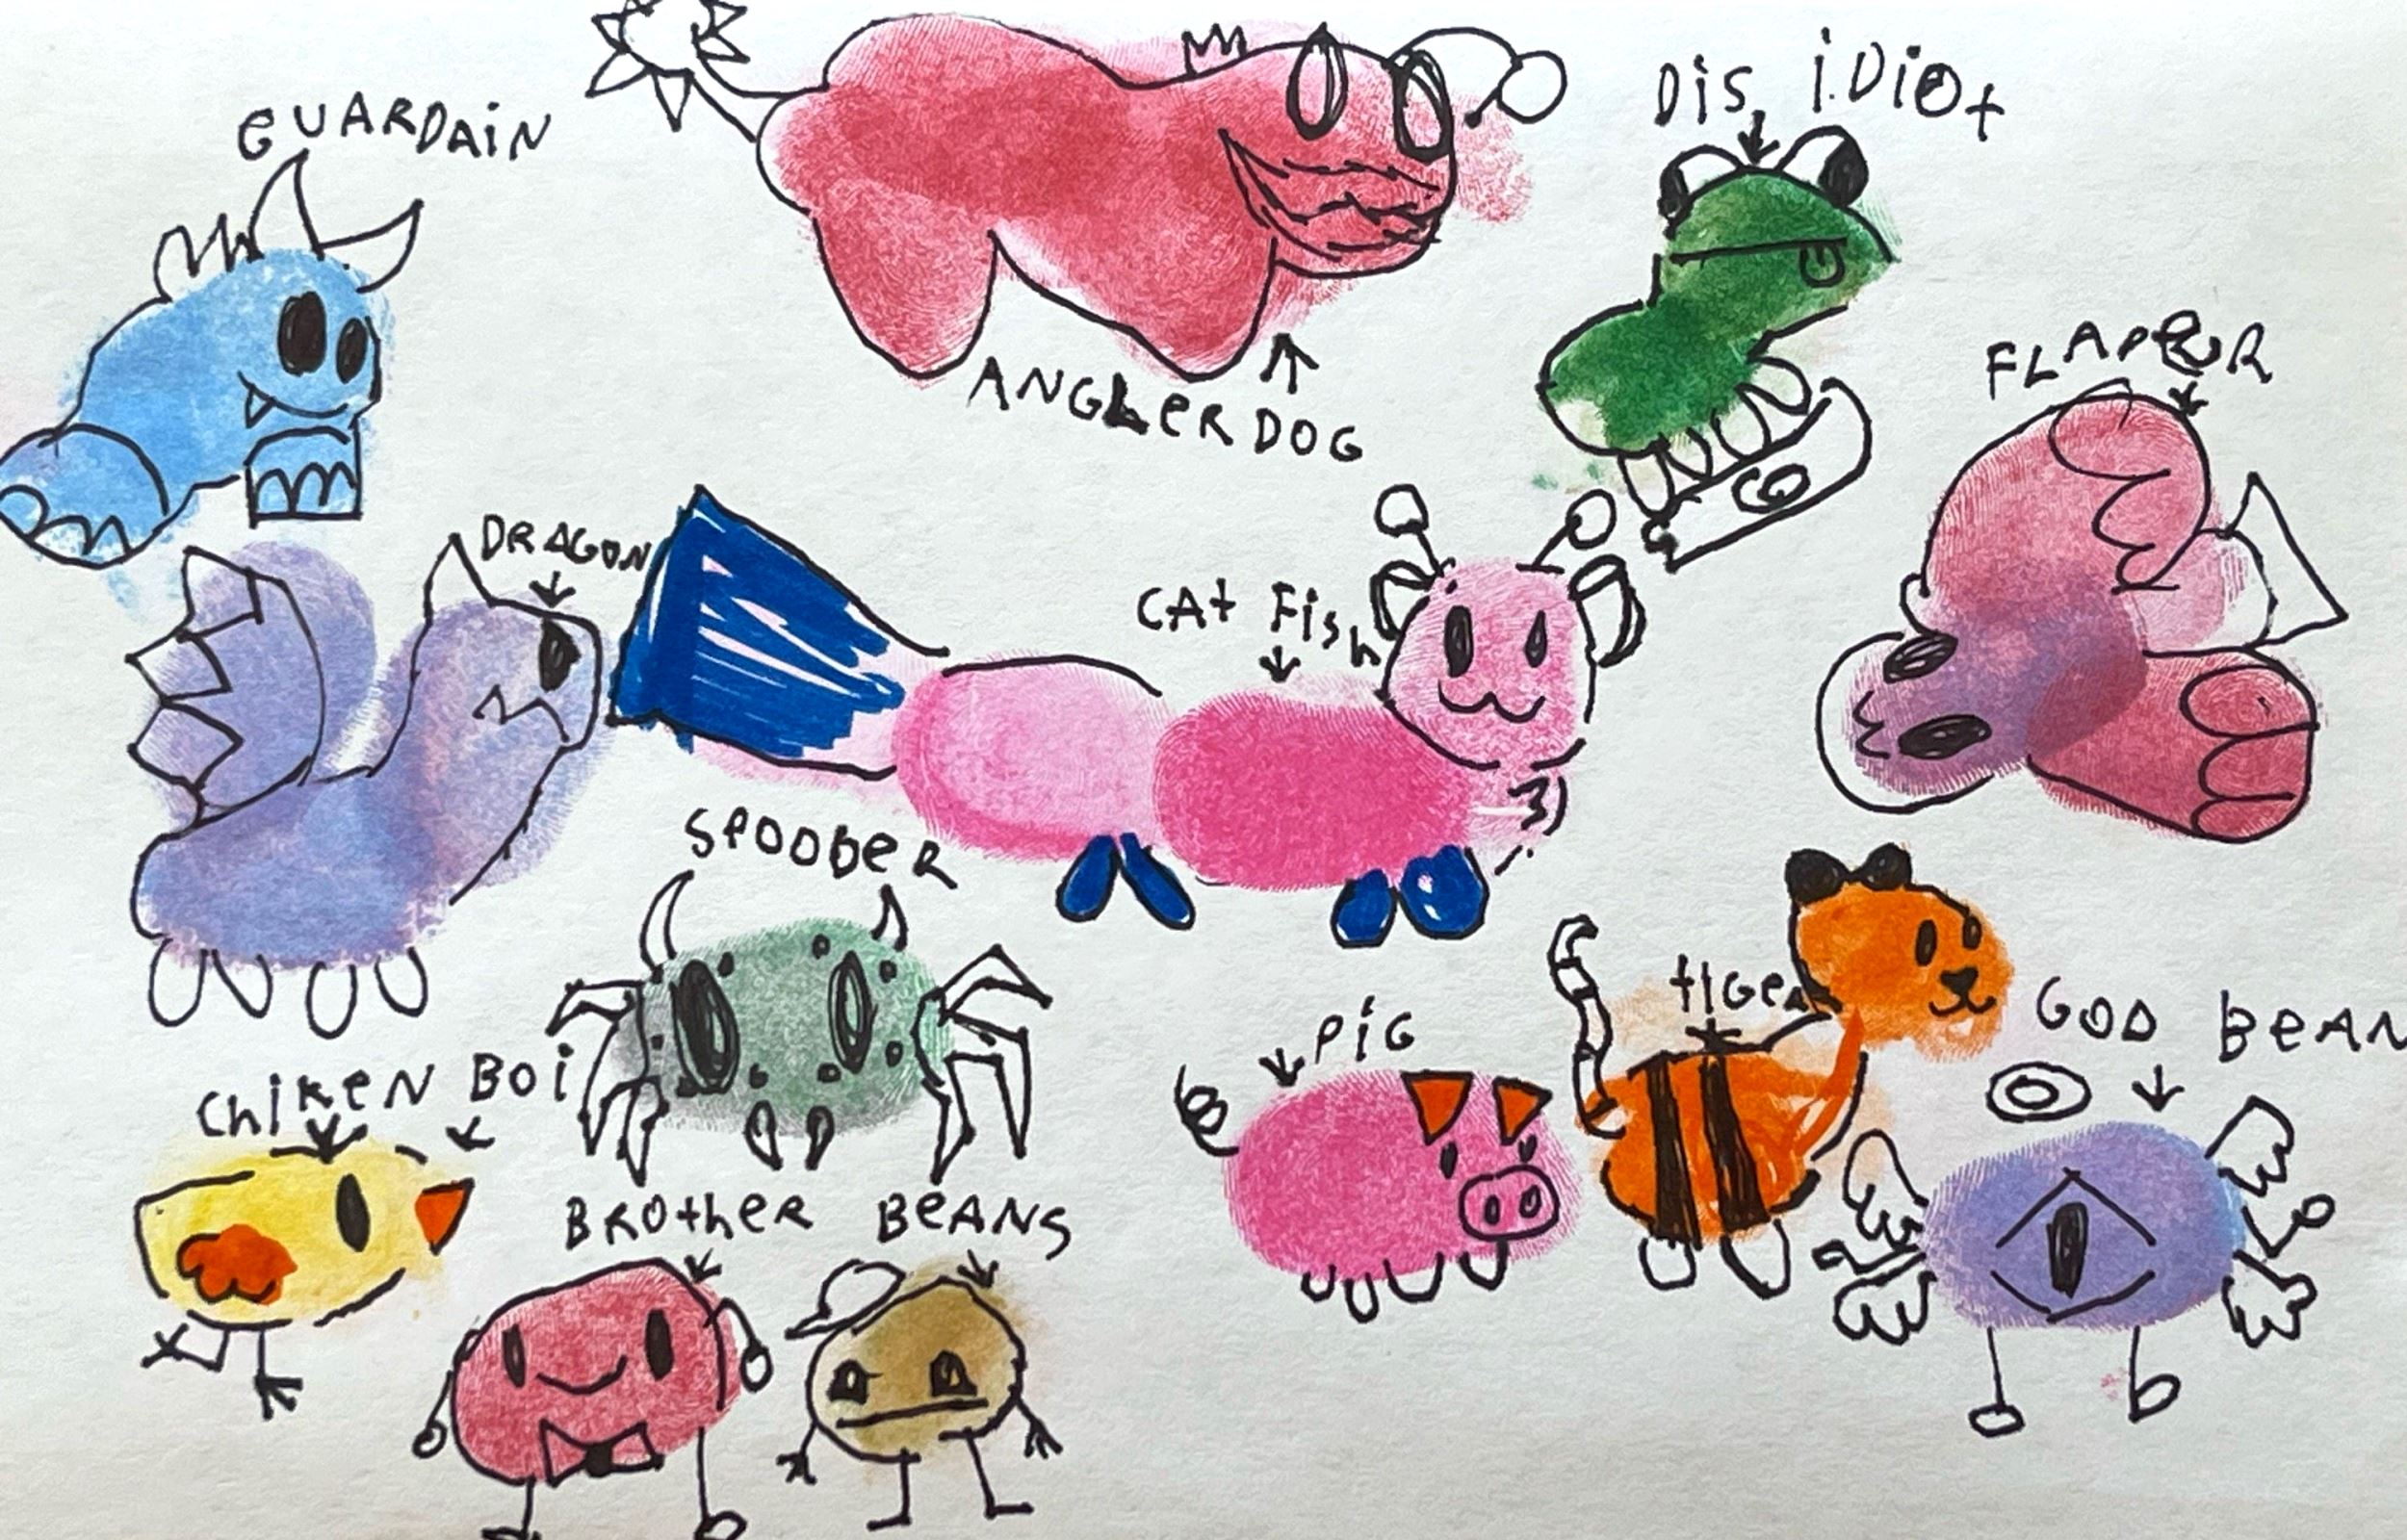 GUARDAiN
DiS iDiOt
ANGLeRDOG
FLAPeR
DRAGON
CAt Fish
SPOODeR
tiGeR
PiG
GOD BeAN
ChiKeN BOi
BROtheR BeANS